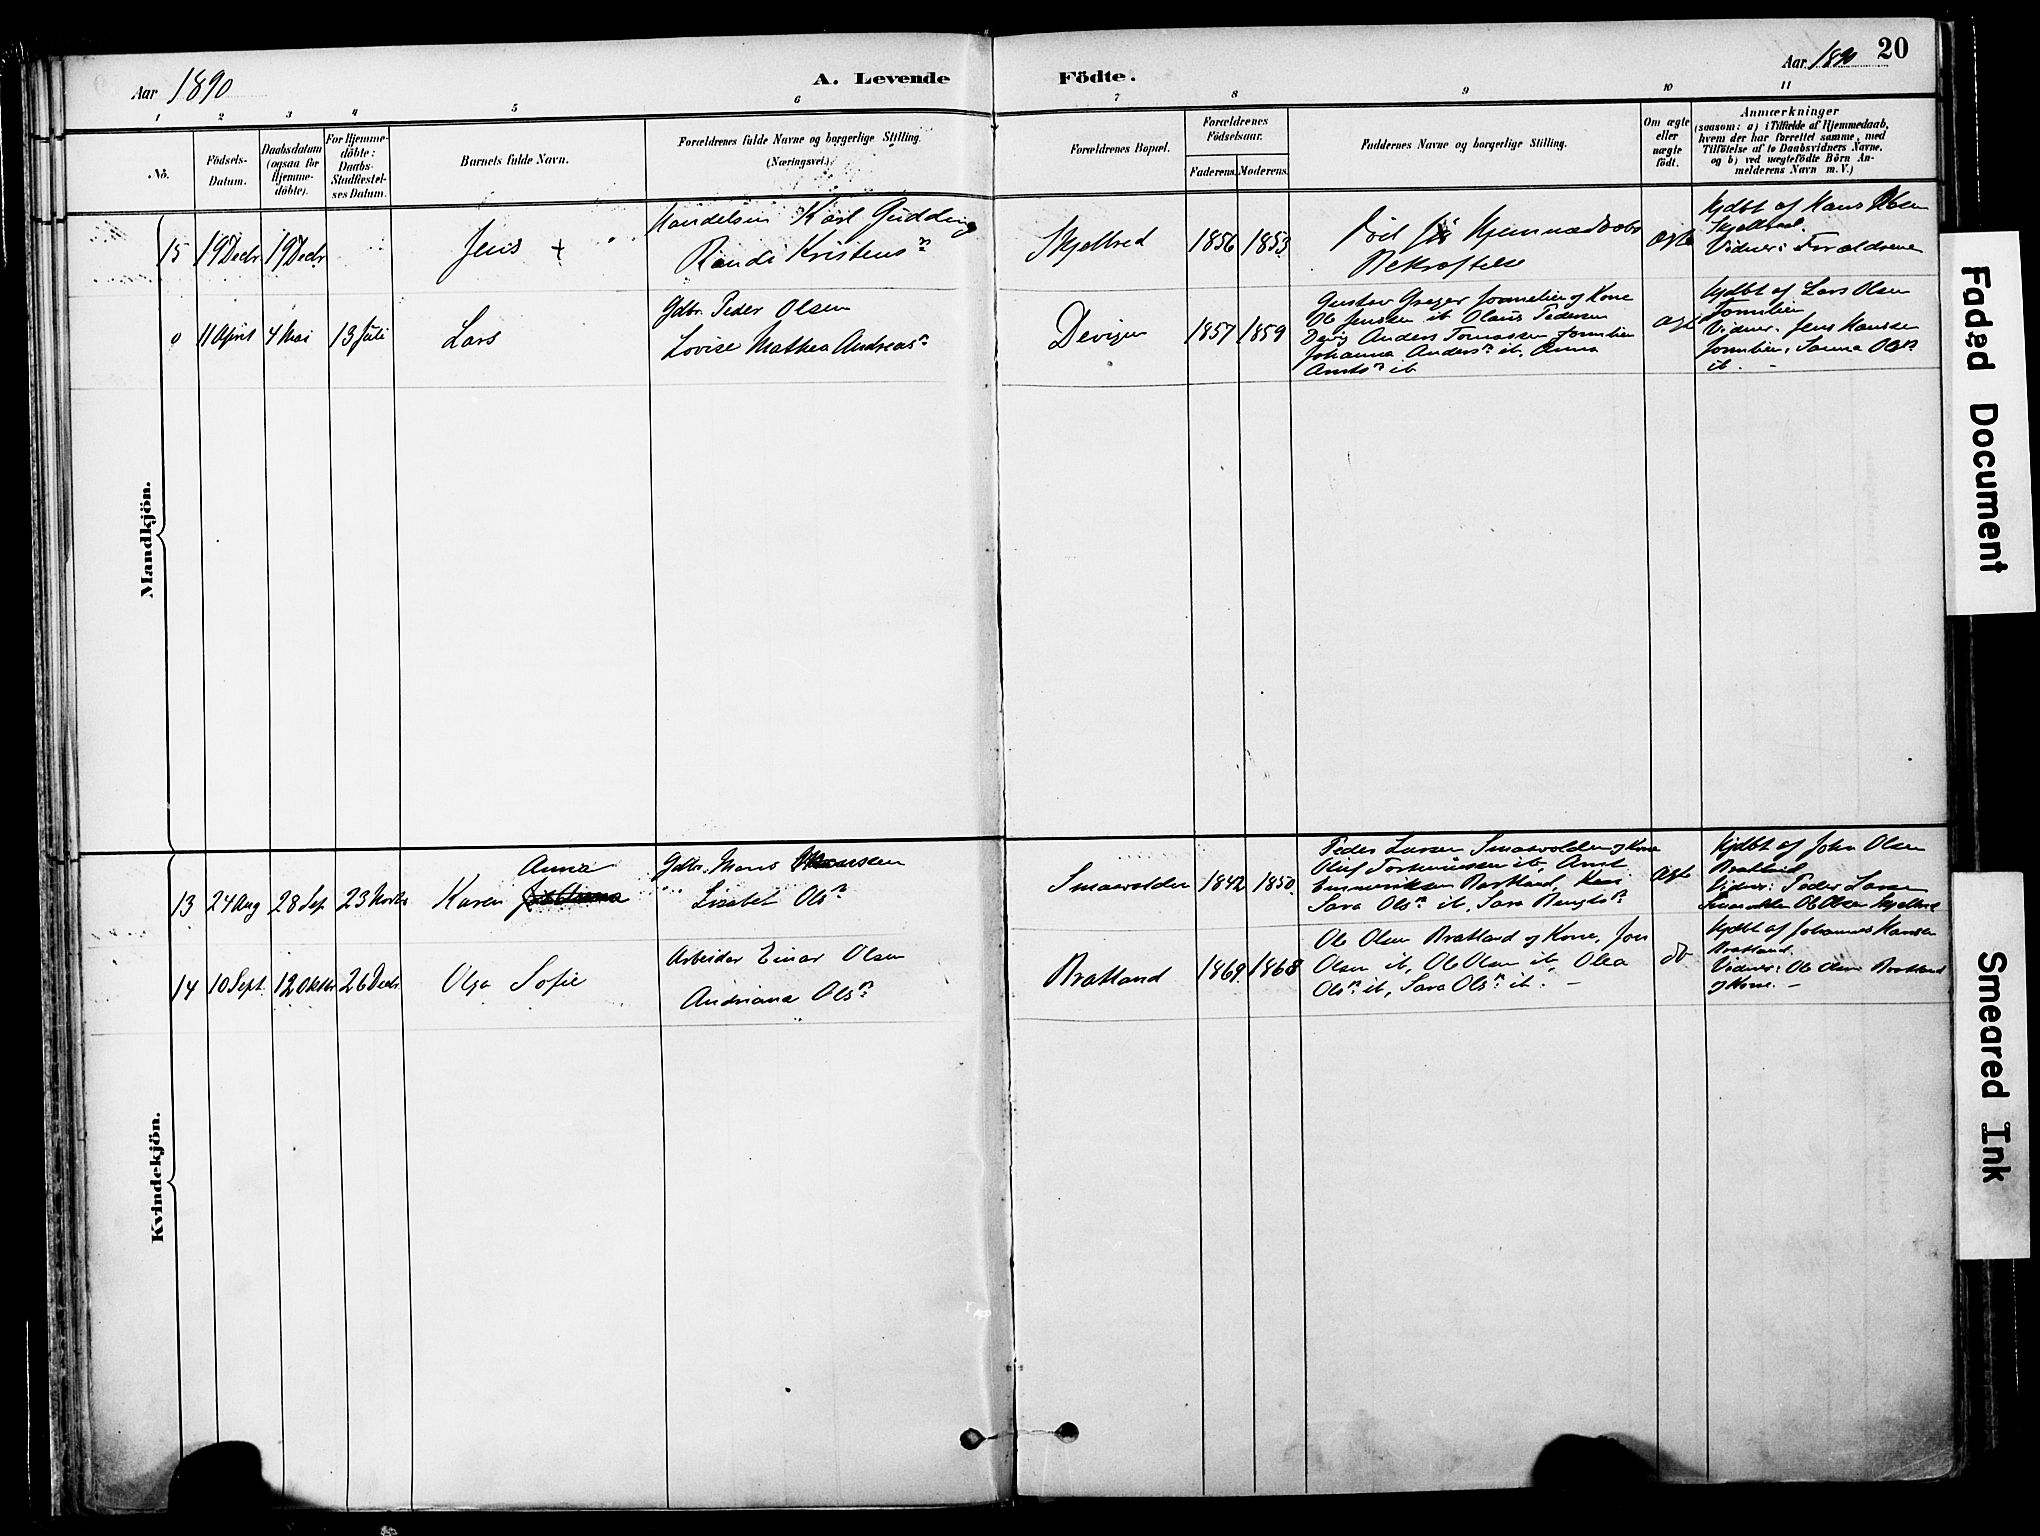 20
Aar 1890
A. Levende Födte.
Aar 1890
1 2 3 4 5 6 7 8 9 10 11
No.
Födsels-
Datum.
Daabsdatum
(ogsaa for
Hjemme-
döbte).
For Hjemme-
döbte:
Daabs-
Stadfæstel-
ses Datum.
Barnets fulde Navn.
Forældrenes fulde Navne og borgerlige Stilling.
(Næringsvei.)
Forældrenes Bopæl.
Forældrenes
Födselsaar.
Faderens. Moderens.
Faddernes Navne og borgerlige Stilling.
Om ægte
eller
uægte
født.
Anmærkninger
(saasom: a) i Tilfælde af Hjemmedaab,
hvem der har forrettet samme, med
Tilföielse af to Daabsvidners Navne.
og b) ved uægtefödte Börn An-
melderens Navn m. V.)
Mandkjön.
15 19 Decbr 19 Decbr Jens +
Karl Gudding
Randi Kristensn
Skjelbred 1856 1853
Hjemmedaabs
Bekræftelse
ægte
Hjdbt af Hans Olsen
Skjelbred.
Vidner: Forældrene
0 11 April 4 Mai 13 Juli Lars
Gdbr. Peder Olsen
Lovise Mathea Andreasn
Devigen 1857 1859
Gustav og Kone
Ole Jenssen ib. Olaus Pedersen
Devig Anders Tomassen
Johanna Andersn ib. Anna
ib
ægte
Hjdbt af Lars Olsen
Vidner: Jens Hanssen
Olsn
ib. -
Kvindekjön.
13 24 Aug 28 Sep 23 Novbr Karen Anna
Gdbr. Mons
Lisabet Olsn
Smaavolden 1842 1850
Peder Larsen Smaavolden og Kone
Oluf ib, Arnt
Bratland,
Sara Olsn ib, Sara Bengtsn
ægte
Hjdbt af John Olsen
Bratland
Vidner: Peder Larsen
Smaavolden Ole Olsen Skjelbred
14 10 Sept. 12 Oktbr 26 Decbr Olga Sofie
Arbeider Einar Olsen
Andriana Olsn
Bratland 1869 1868
Ole Olsen Bratland og Kone, Jon
Olsen ib, Ole Olsen ib, Olea
Olsn ib, Sara Olsn ib. -
do
Hjdbt af Johannes Hansen
Bratland.
Vidner: Ole Olsen Bratland
og Kone. -
Faded Document
Smeared Ink